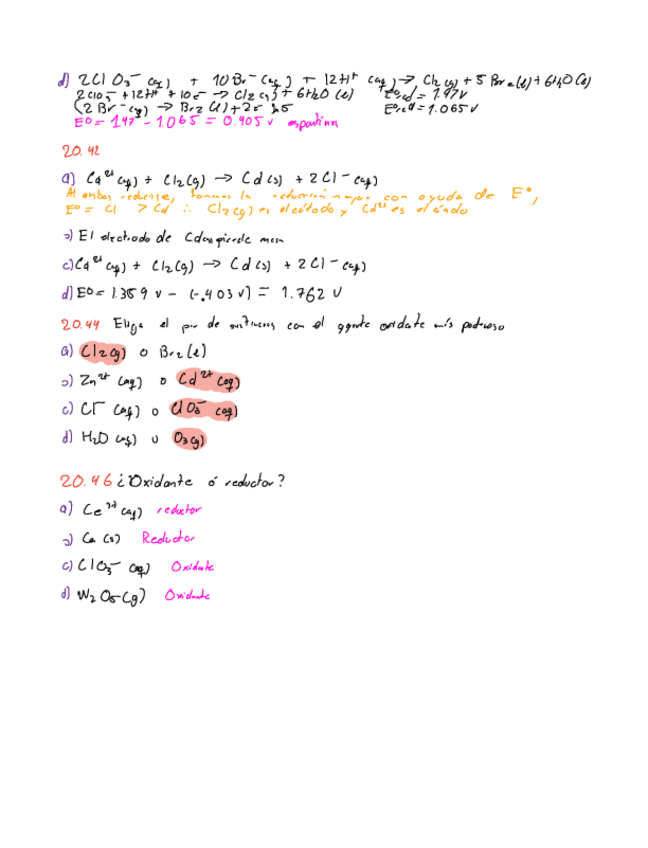 d) 2ClO3⁻(aq) + 10Br⁻(aq) + 12H⁺(aq) → Cl2(g) + 5Br2(l) + 6H2O(l)
2ClO3⁻ + 12H⁺ + 10e⁻ → Cl2(g) + 6H2O(l) E°red = 1.47V
(2Br⁻(aq) → Br2(l) + 2e⁻ E°red = 1.065V
E° = 1.47 - 1.065 = 0.405 v
20.42
a) (aq) + Cl2(g) → Cd(s) + 2Cl⁻(aq)
Al ambos reducirse, tomamos la reducción mayor con ayuda de E°,
E° = Cl > Cd ∴ Cl2(g) es el cátodo y Cd²⁺ es el ánodo
El electrodo de pierde masa
c) (aq) + Cl2(g) → Cd(s) + 2Cl⁻(aq)
d) E° = 1.359v - (-.403v) = 1.762 V
20.44 Elija el par de con el oxidate más poderoso
a) Cl2(g) o Br2(l)
Zn²⁺(aq) o Cd²⁺(aq)
c) Cl⁻(aq) o (aq)
d) H2O o O3(g)
20.46 ¿Oxidante ó reductor?
a) Ce³⁺(aq) reductor
Ca(s) Reductor
c) ClO3⁻(aq) Oxidate
d) (g) Oxidante